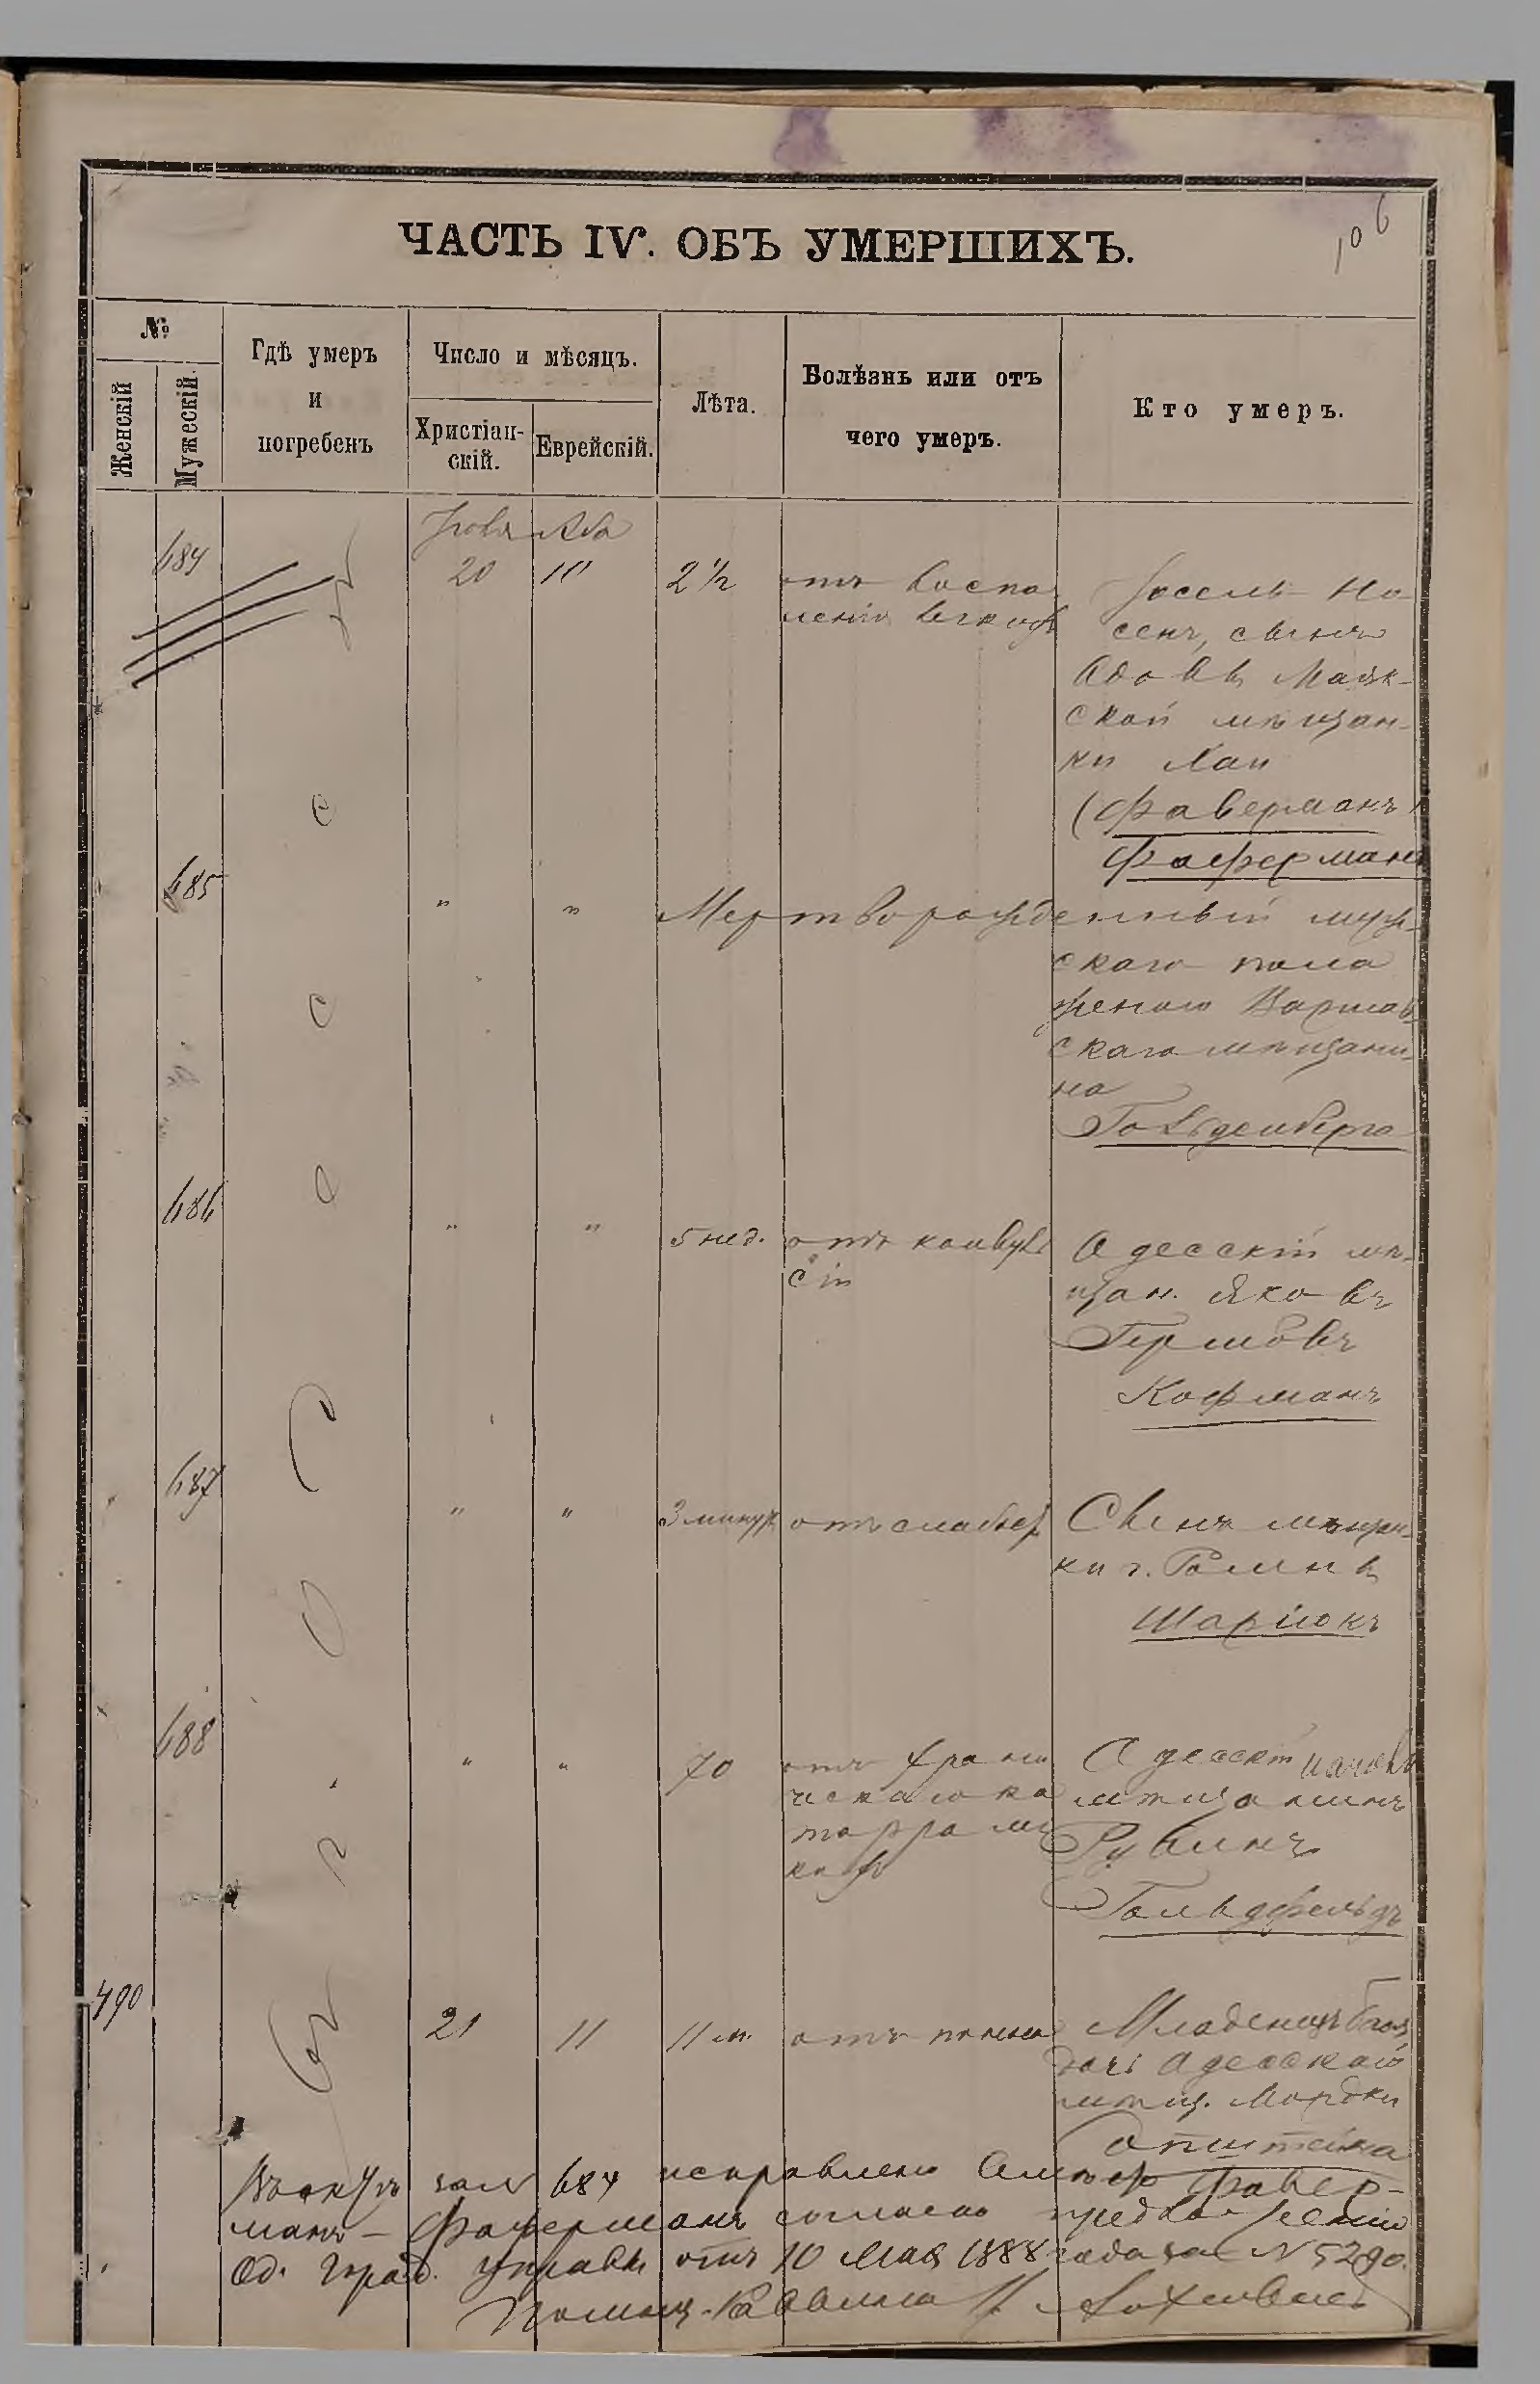 106
ЧАСТЬ IV. ОБЪ УМЕРШИХЪ.
№
Женскій
Мужескій.
Гдѣ умеръ
и
погребенъ
Число и мѣсяцъ.
Христіан-
скій.
Еврейскій.
Лѣта.
Болѣзнь или отъ
чего умеръ.
Кто умеръ.
Въ г. Одессѣ
684
Іюля Аба
20 10 2 ½ отъ воспа
ленія легкихъ
Іосель Но
сенъ, сынъ
вдовы Маяк-
ской мѣщан-
ки Хаи
(Фаверманъ)
Фаферманъ
685 " " Мертворожденный муж-
скаго пола
женою Варшав
скаго мѣщани
на
Гольденберга
686 " " 5 нед. отъ конвуль
сіи
Одесскій мѣ-
щан. Яковъ
Гершовъ
Кофманъ
687 " " 3 минут. отъ слабост.
Сынъ мѣщан-
ки г. Ромнъ
Шаріокъ
688 " " 70 отъ хрони
ческаго ка
тарра
Одесскій
мѣщанинъ
Рувинъ
Гольдфельдъ
490 21 11 11 м. отъ поноса
Младенецъ
дочь Одесскаго
мѣщ. Мордки
Општейна
684 исправлено вмѣсто Фавер-
манъ — Фаферманъ согласно предложенію
Од. Город. Управы отъ 10 Мая 1888 года за N 5290.
Помощ. Раввина